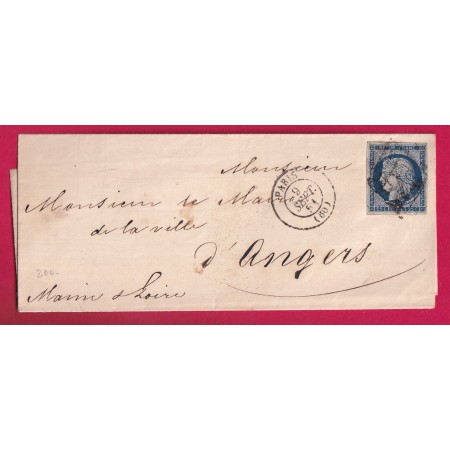 Monsieur
Monsieur le Mai
de la ville
d'Angers
Maine & Loire
200-
PARIS
9
SEPT.
51
(60)